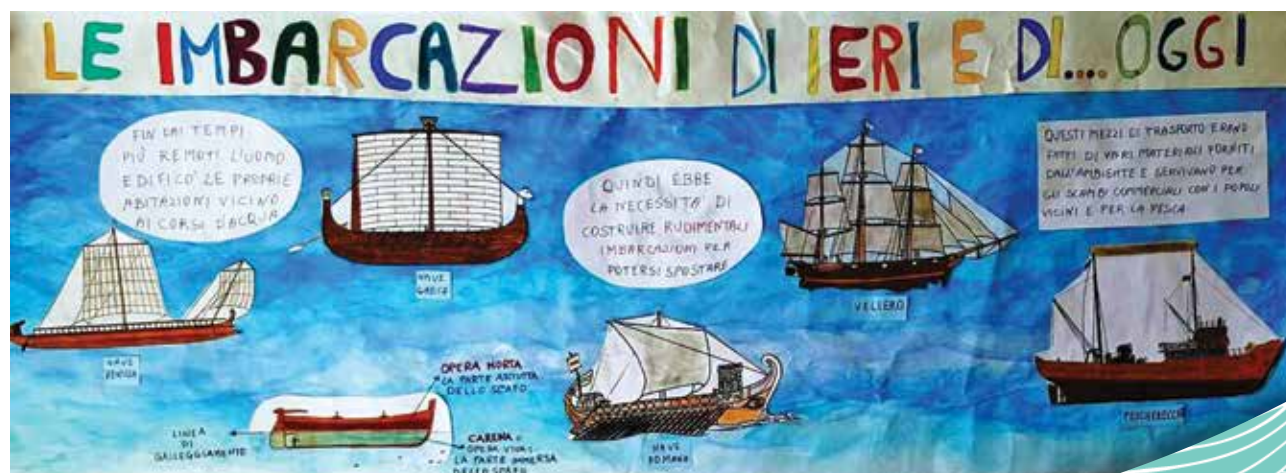 LE IMBARCAZIONI DI IERI E DI....OGGI
FIN DAI TEMPI
PIÙ REMOTI L'UOMO
EDIFICO' LE PROPRIE
ABITAZIONI VICINO
AI CORSI D'ACQUA
NAVE
GRECA
QUINDI EBBE
LA NECESSITA' DI
COSTRUIRE RUDIMENTALI
IMBARCAZIONI PER
POTERSI SPOSTARE
VELIERO
QUESTI MEZZI DI TRASPORTO ERANO
FATTI DI VARI MATERIALI FORNITI
DALL'AMBIENTE E SERVIVANO PER
GLI SCAMBI COMMERCIALI CON I POPOLI
VICINI E PER LA PESCA
PESCHERECCIO
NAVE
OPERA MORTA
LA PARTE ASCIUTTA
DELLO SCAFO
LINEA
DI
GALLEGGIAMENTO
CARENA O
OPERA VIVA:
LA PARTE IMMERSA
DELLO SCAFO
NAVE
ROMANA